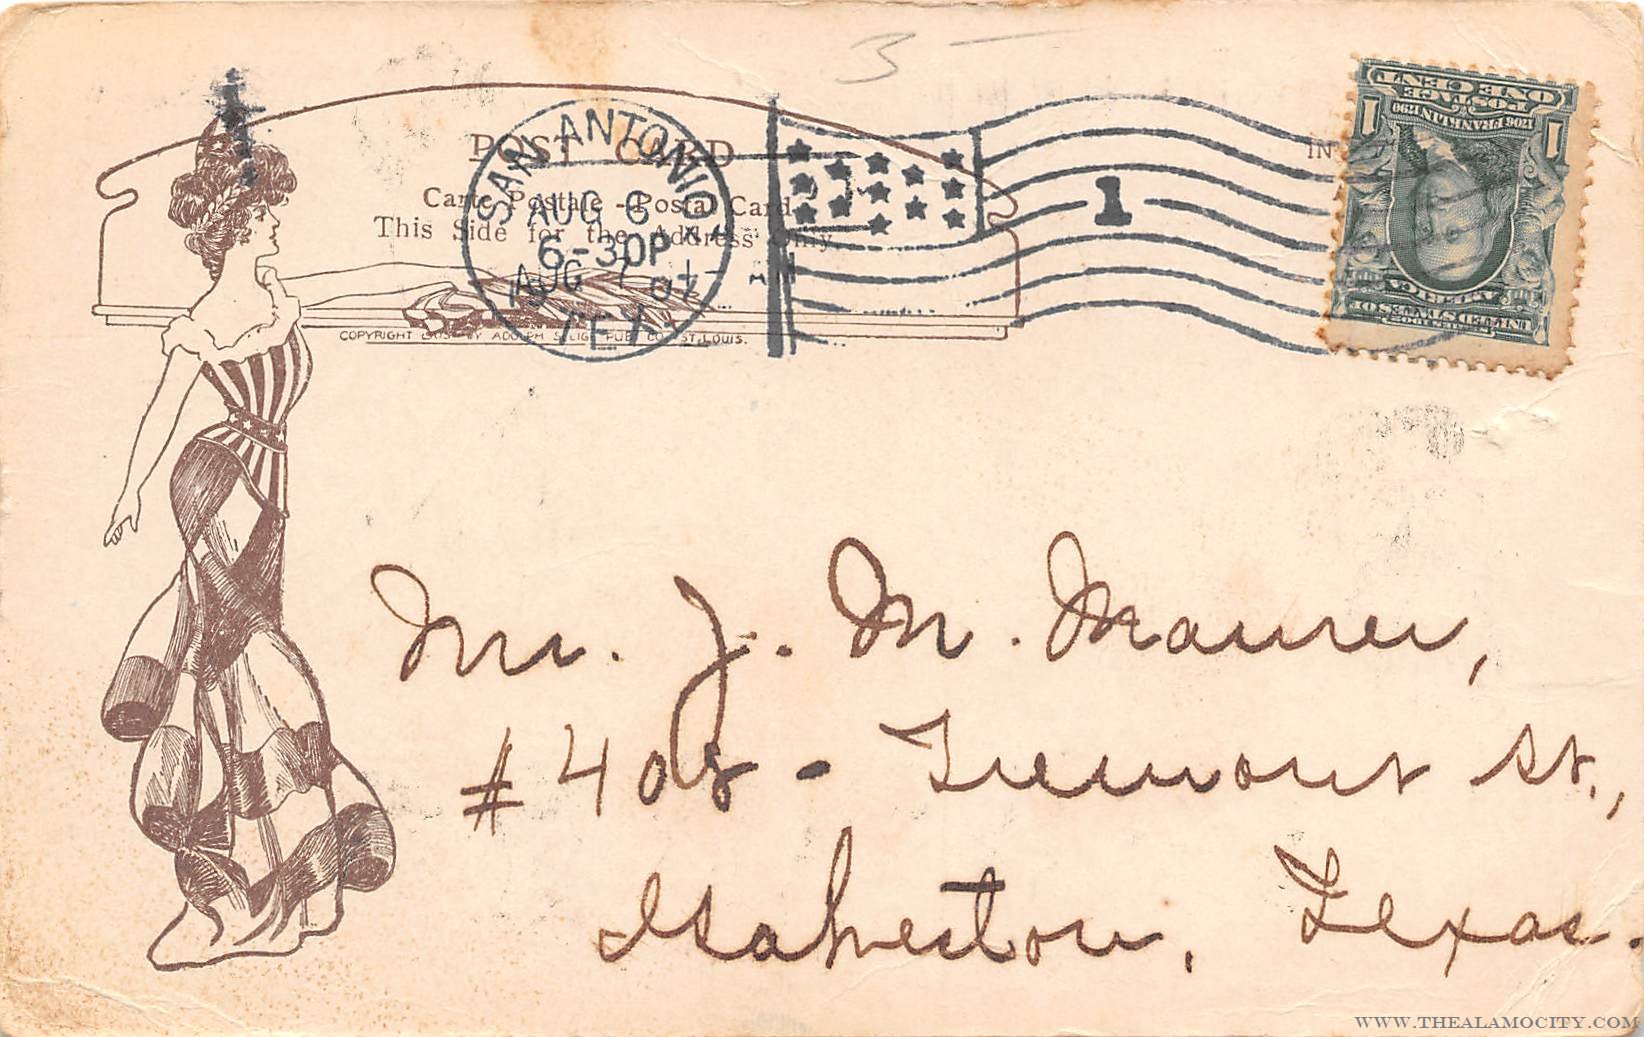 3 —
POST CARD
Carte Postale - Postal Card
This Side for the Address Only
COPYRIGHT 1905 BY ADOLPH SELIGE PUB. CO., ST. LOUIS.
SAN ANTONIO
AUG 6
6-30P
TEX.
AUG 7 AM
1
IN
ONE CENT
POSTAGE
1706 FRANKLIN 1790
1 1
SERIES 1902
UNITED STATES OF AMERICA
Mr. J. M. Maurer,
#408 - Tremont St.,
Galveston, Texas.
WWW.THEALAMOCITY.COM